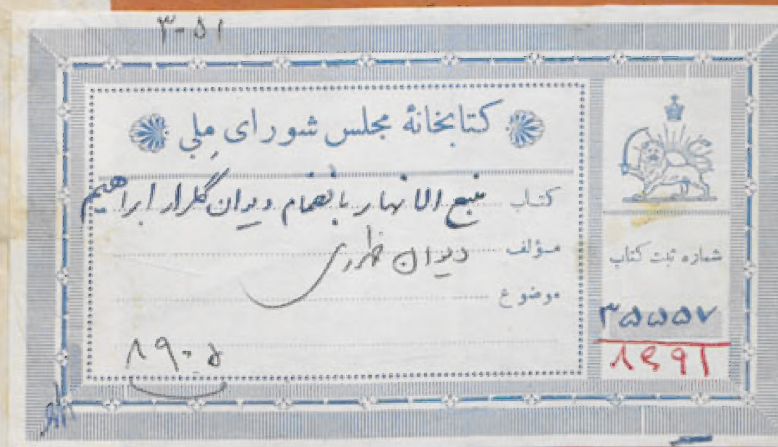 ۳-۵۱
کتابخانهٔ مجلس شورای ملی
کتاب منبع الانهار بانضمام دیوان گلزار ابراهیم
مؤلف دیوان ظهوری
موضوع
شماره ثبت کتاب
۳۵۵۵۷
۸۹۰۵